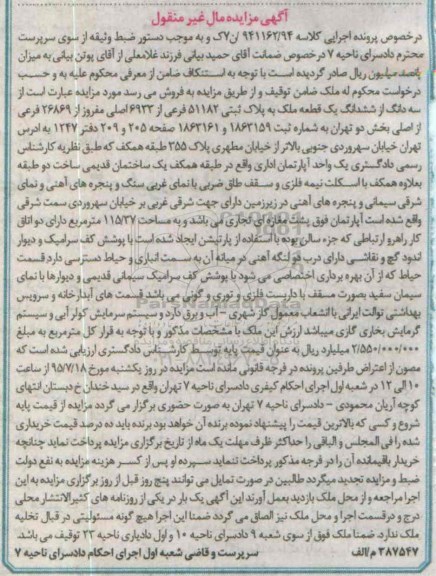 آگهی مزایده مال غیر منقول
درخصوص پرونده اجرایی کلاسه ۹۴۱۱۶۲/۹۴ ن/۷ک و به موجب دستور ضبط وثیقه از سوی سرپرست
محترم دادسرای ناحیه ۷ درخصوص ضمانت آقای حمید بیانی فرزند غلامعلی از آقای پوتن بیانی به میزان
پانصد میلیون ریال صادر گردیده است با توجه به استنکاف ضامن از معرفی محکوم علیه و حسب
درخواست محکوم له ملک ضامن توقیف و از طریق مزایده به فروش می رسد مورد مزایده عبارت است از
سه دانگ از ششدانگ یک قطعه ملک به پلاک ثبتی ۵۱۱۸۲ فرعی از ۶۹۳۳ اصلی مفروز از ۲۶۸۶۹ فرعی
از اصلی بخش دو تهران به شماره ثبت ۱۸۶۳۱۵۹ و ۱۸۶۳۱۶۱ صفحه ۲۰۵ و ۲۰۹ دفتر ۱۲۴۷ به ادرس
تهران خیابان سهروردی جنوبی بالاتر از خیابان مطهری پلاک ۲۵۵ طبقه همکف که طبق نظریه کارشناس
رسمی دادگستری یک واحد آپارتمان اداری واقع در طبقه همکف یک ساختمان قدیمی ساخت دو طبقه
بعلاوه همکف با اسکلت نیمه فلزی و سقف طاق ضربی با نمای غربی سنگ و پنجره های آهنی و نمای
شرقی سیمانی و پنجره های آهنی در زیرزمین دارای جهت شرقی غربی بر خیابان سهروردی سمت شرقی
واقع شده است آپارتمان فوق پشت مغازه ی تجاری می باشد و به مساحت ۱۱۵/۳۷ مترمربع دارای دو اتاق
کار راهرو ارتباطی که جزء سالن بوده با استفاده از پارتیشن ایجاد شده است با پوشش کف سرامیک و دیوار
اندود گچ و نقاشی دارای درب دو لنگه آهنی در میانه آن به سمت انباری و حیاط دسترسی دارد قسمت
حیاط که از آن بهره برداری اختصاصی می شود با پوشش کف سرامیک سیمانی قدیمی و دیوارها با نمای
سیمان سفید بصورت مسقف با داربست فلزی و توری و گونی می باشد قسمت های آبدارخانه و سرویس
بهداشتی توالت ایرانی با انشعاب معمول گاز شهری - آب و برق دارد و سیستم سرمایش کولر آبی و سیستم
گرمایش بخاری گازی میباشد ارزش این ملک با مشخصات مذکور و با توجه به قرار کل مترمربع به مبلغ
۲/۵۵۰/۰۰۰/۰۰۰ میلیارد ریال به عنوان قیمت پایه توسط کارشناس دادگستری ارزیابی شده است که
مصون از اعتراض طرفین پرونده در فرجه قانونی مانده است مزایده در روز یکشنبه مورخ ۹۵/۷/۱۸ از ساعت
۱۰ الی ۱۲ در شعبه اول اجرای احکام کیفری دادسرای ناحیه ۷ تهران واقع در سید خندان خ دبستان انتهای
کوچه آریان محمودی - دادسرای ناحیه ۷ تهران به صورت حضوری برگزار می گردد مزایده از قیمت پایه
شروع و کسی که بالاترین قیمت را پیشنهاد نموده برنده آن خواهد بود برنده باید ده درصد قیمت خریداری
شده را فی المجلس و الباقی را حداکثر ظرف مهلت یک ماه از تاریخ برگزاری مزایده پرداخت نماید چنانچه
خریدار باقیمانده آن را در فرجه مذکور پرداخت ننماید سپرده او پس از کسر هزینه مزایده به نفع دولت
ضبط و مزایده تجدید میگردد طالبین در صورت تمایل می توانند پنج روز قبل از روز برگزاری مزایده به این
اجرا مراجعه و از محل ملک بازدید بعمل آورند این آگهی یک بار در یکی از روزنامه های کثیرالانتشار محلی
درج و درقسمت اجرا و محل ملک نیز الصاق می گردد ضمنا این اجرا هیچ گونه مسئولیتی در قبال تخلیه
ملک ندارد. ضمنا ملک فوق از سوی شعبه ۹ دادسرای ناحیه ۱۰ و اول دادیاری ناحیه ۲۳ توقیف می باشد.
۲۸۷۵۴۷ م/الف سرپرست و قاضی شعبه اول اجرای احکام دادسرای ناحیه ۷